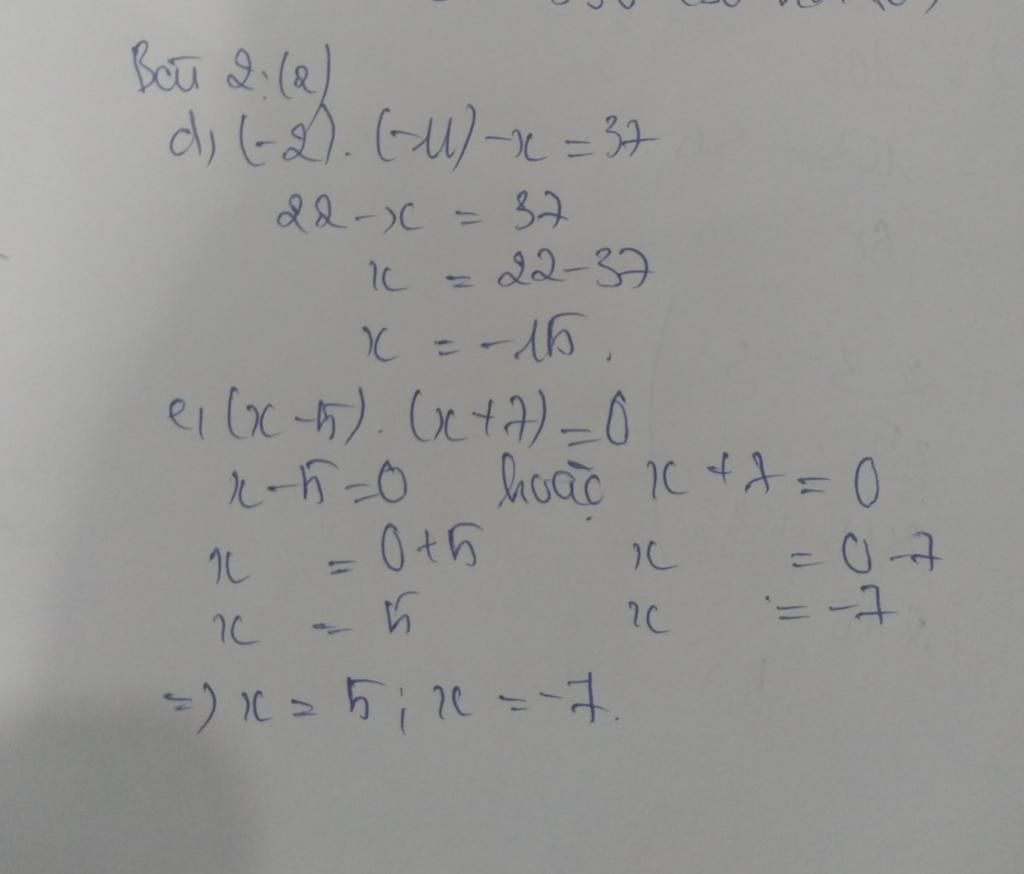 Bài 2: (2)
d, (-2). (-11) - x = 37
22 - x = 37
x = 22 - 37
x = -15.
e, (x - 5). (x + 7) = 0
x - 5 = 0 hoặc x + 7 = 0
x = 0 + 5 x = 0 - 7
x = 5 x = -7
=> x = 5 ; x = -7.